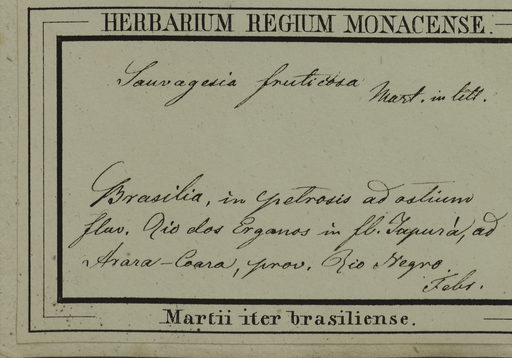 HERBARIUM REGIUM MONACENSE.
Sauvagesia fruticosa
Mart. in litt.
Brasilia, in petrosis ad ostium
fluv. Rio dos Erganos in fl. Japurá, ad
Arara-Coara, prov. Rio Negro.
Febr.
Martii iter brasiliense.